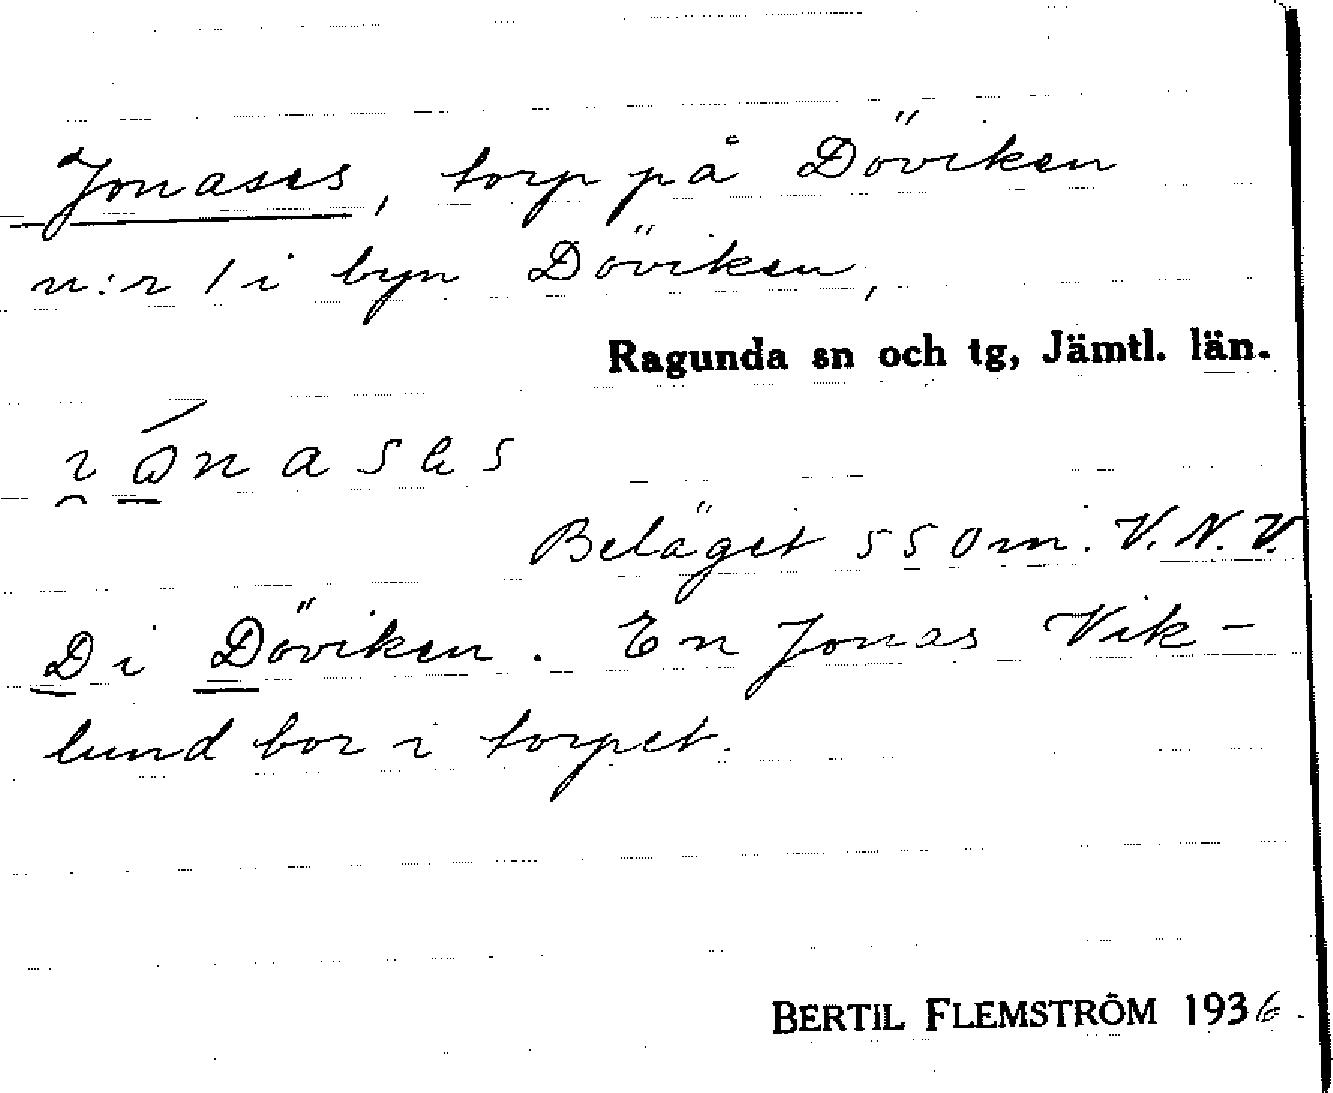 Jonases, torp på Döviken
n:r 1 i byn Döviken,
Ragunda sn och tg, Jämtl. län.
Beläget 550 m. V.N.V.
D i Döviken. En Jonas Vik-
lund bor i torpet.
BERTIL FLEMSTRÖM 1936.